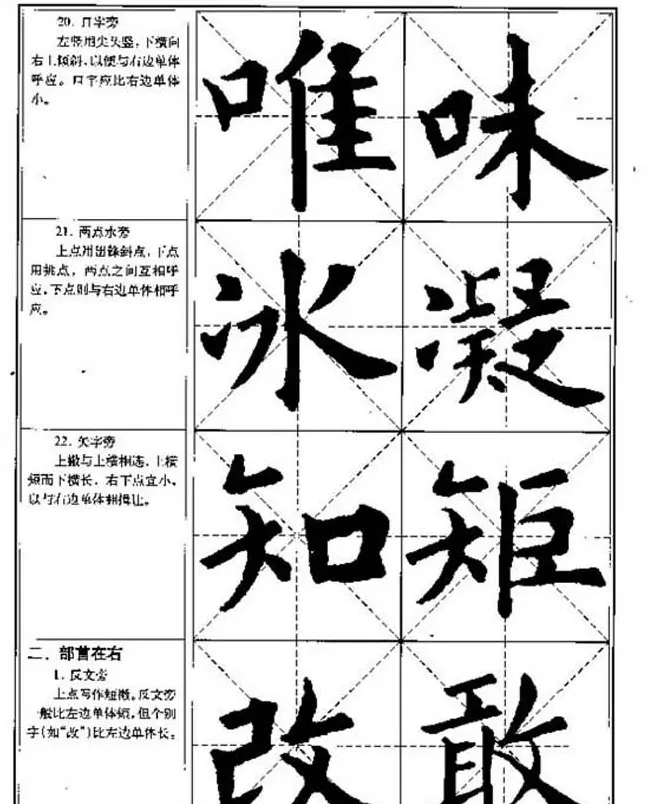 20. 口字旁
左竖用尖头竖，下横向
右上倾斜，以便与右边单体
呼应。口字应比右边单体
小。
唯 味
21. 两点水旁
上点用出锋斜点，下点
用挑点，两点之间互相呼
应，下点则与右边单体相呼
应。
冰 凝
22. 矢字旁
上撇与上横相连，上横
短而下横长，右下点宜小，
以与右边单体相揖让。
知 矩
二、部首在右
1. 反文旁
上点写作短撇。反文旁
一般比左边单体短，但个别
字（如“改”）比左边单体长。
改 敢